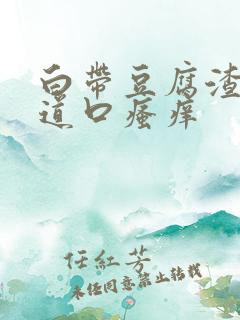 白帶豆腐渣
道口瘙痒
任紅芳
未经同意禁止转载